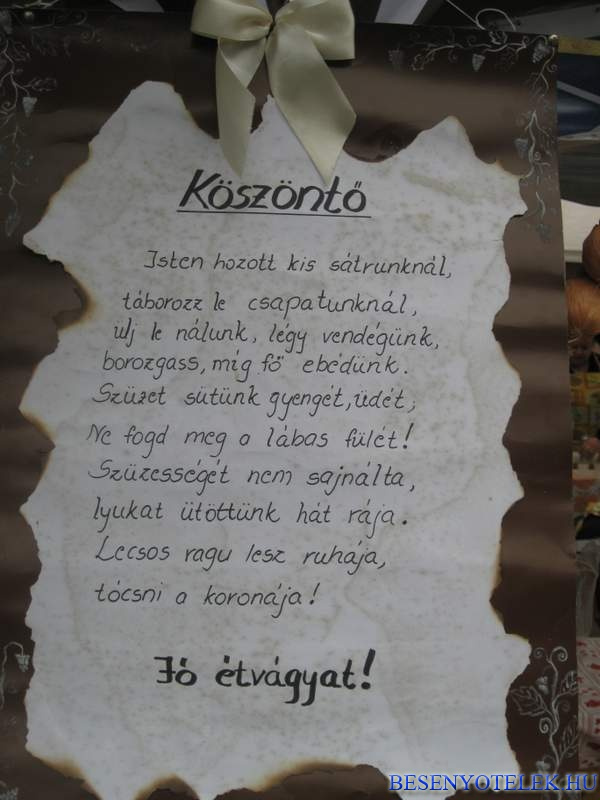 Köszöntő
Isten hozott kis sátrunknál,
táborozz le csapatunknál,
ülj le nálunk, légy vendégünk,
borozgass, míg fő ebédünk.
Szüzet sütünk gyengét, üdét,
Ne fogd meg a lábas fülét!
Szüzességét nem sajnálta,
lyukat ütöttünk hát rája.
Lecsos ragu lesz ruhája,
tócsni a koronája!
Jó étvágyat!
BESENYOTELEK.HU